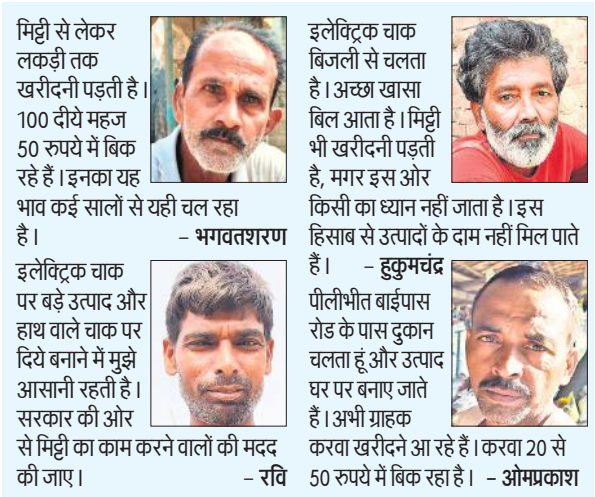 मिट्टी से लेकर
लकड़ी तक
खरीदनी पड़ती है।
100 दीये महज
50 रुपये में बिक
रहे हैं। इनका यह
भाव कई सालों से यही चल रहा
है। – भगवतशरण
इलेक्ट्रिक चाक
पर बड़े उत्पाद और
हाथ वाले चाक पर
दिये बनाने में मुझे
आसानी रहती है।
सरकार की ओर
से मिट्टी का काम करने वालों की मदद
की जाए। – रवि
इलेक्ट्रिक चाक
बिजली से चलता
है। अच्छा खासा
बिल आता है। मिट्टी
भी खरीदनी पड़ती
है, मगर इस ओर
किसी का ध्यान नहीं जाता है। इस
हिसाब से उत्पादों के दाम नहीं मिल पाते
हैं। – हुकुमचंद्र
पीलीभीत बाईपास
रोड के पास दुकान
चलता हूं और उत्पाद
घर पर बनाए जाते
हैं। अभी ग्राहक
करवा खरीदने आ रहे हैं। करवा 20 से
50 रुपये में बिक रहा है। – ओमप्रकाश